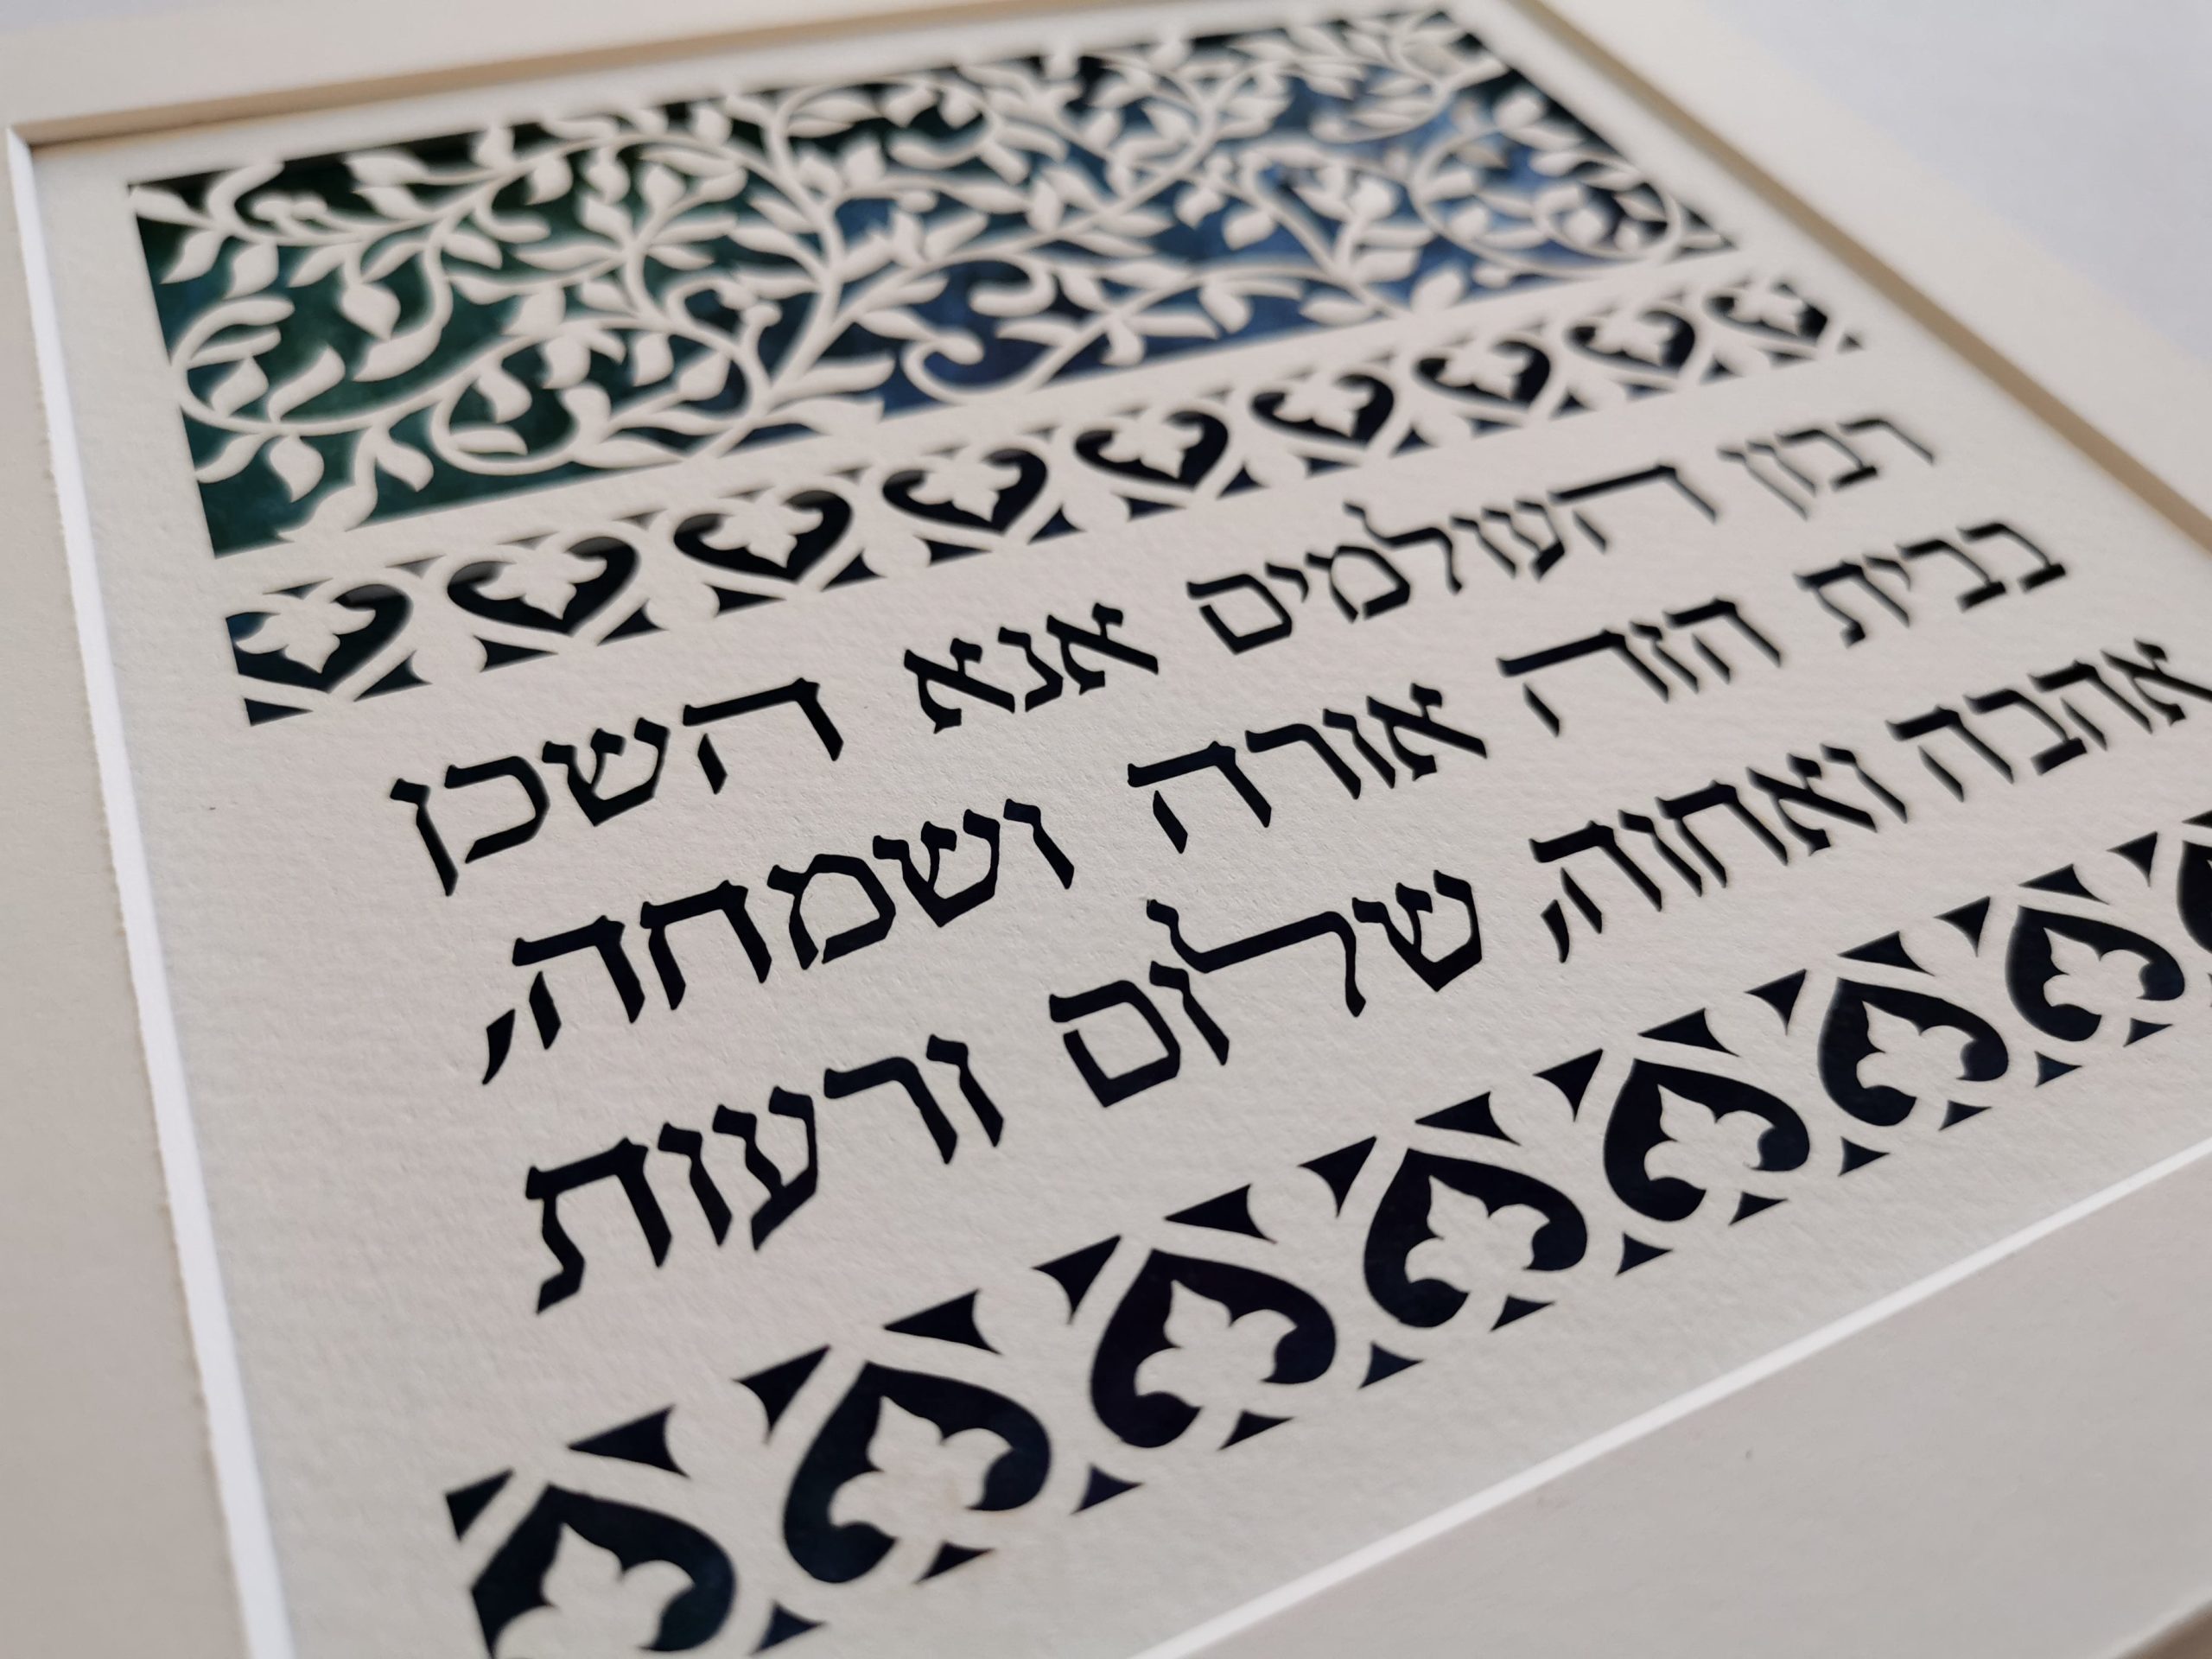 רבון העולמים אנא השכן
בבית הזה אורה ושמחה,
אהבה ואחוה, שלום ורעות